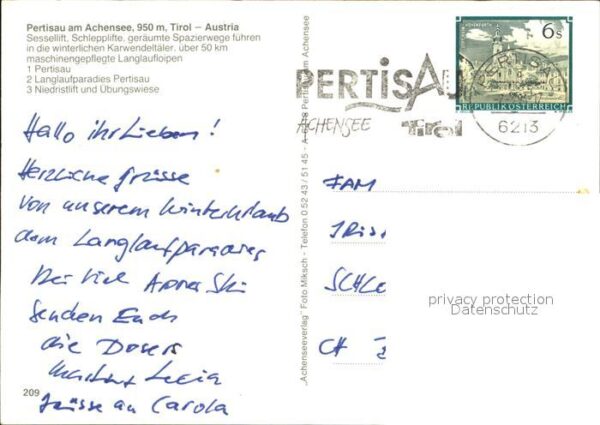 Pertisau am Achensee, 950 m, Tirol – Austria
Sessellift, Schlepplifte, geräumte Spazierwege führen
in die winterlichen Karwendeltäler. über 50 km
maschinengepflegte Langlaufloipen
1 Pertisau
2 Langlaufparadies Pertisau
3 Niedristlift und Übungswiese
Hallo ihr Lieben!
Herzliche Grüsse
von unserem Winterurlaub
dem Langlaufparadies
Bei viel Apres Ski
senden Euch
die Dosers
Lucia
Grüsse an Carola
209
"Achenseeverlag" Foto Miksch - Telefon 0 52 43 / 51 45 - A-6213 Pertisau am Achensee
PERTISAU
ACHENSEE
Tirol
6213
6 S
REPUBLIK ÖSTERREICH
FAM
CH
privacy protection
Datenschutz